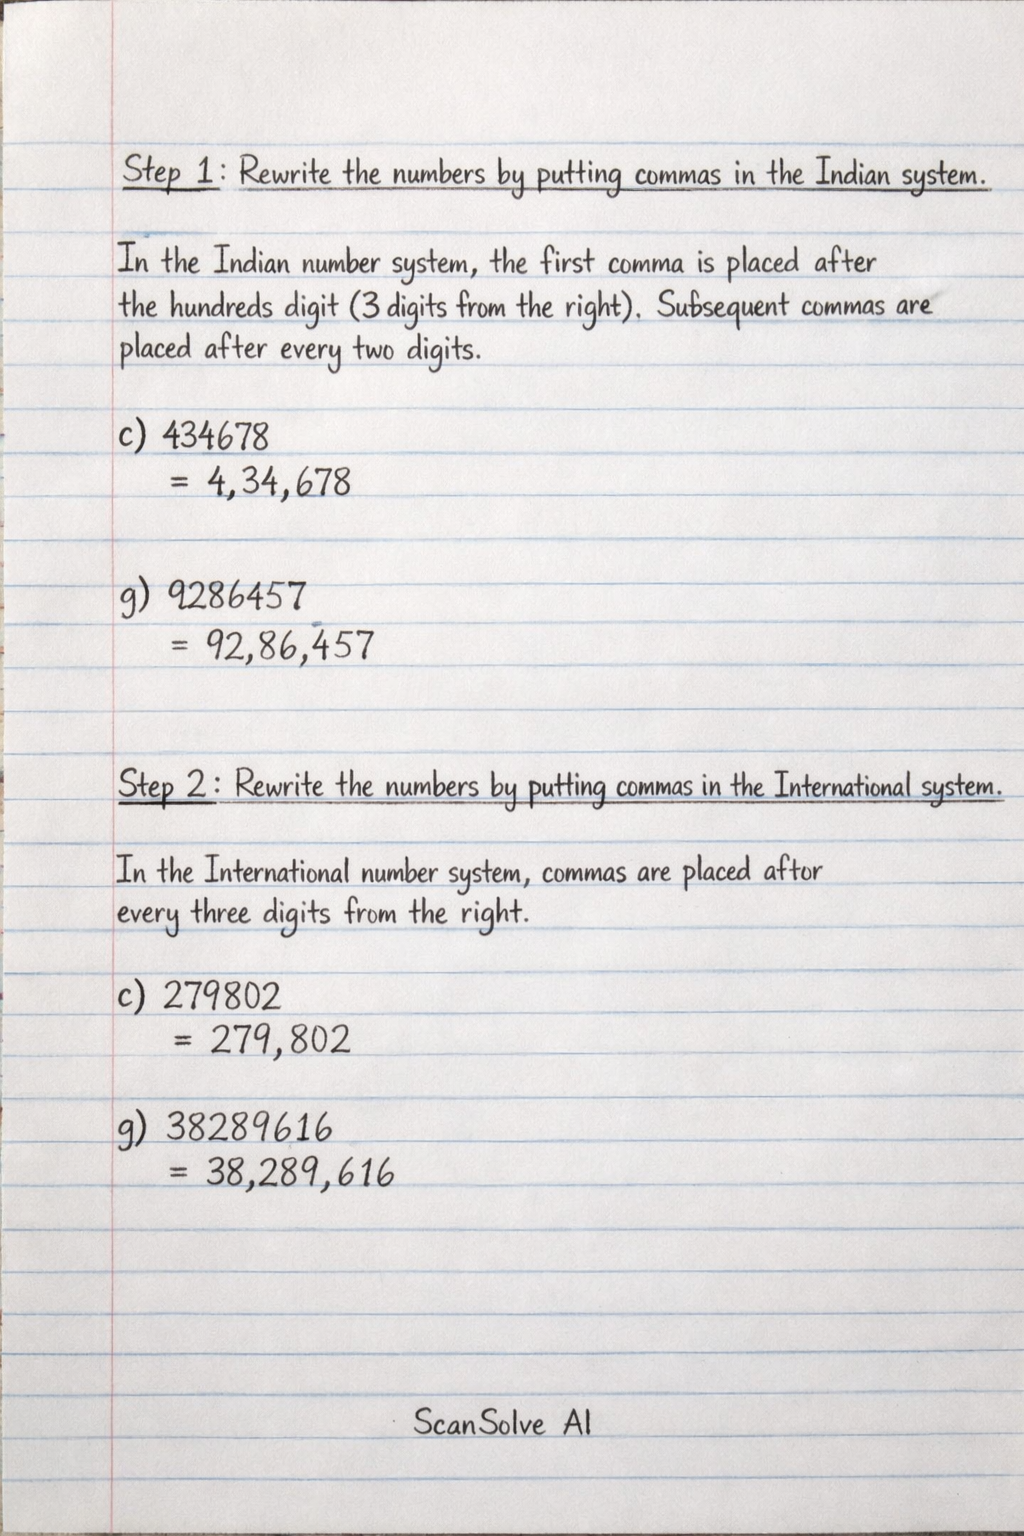 Step 1: Rewrite the numbers by putting commas in the Indian system.
In the Indian number system, the first comma is placed after
the hundreds digit (3 digits from the right). Subsequent commas are
placed after every two digits.
c) 434678
= 4,34,678
g) 9286457
= 92,86,457
Step 2: Rewrite the numbers by putting commas in the International system.
In the International number system, commas are placed aftor
every three digits from the right.
c) 279802
= 279,802
g) 38289616
= 38,289,616
ScanSolve AI